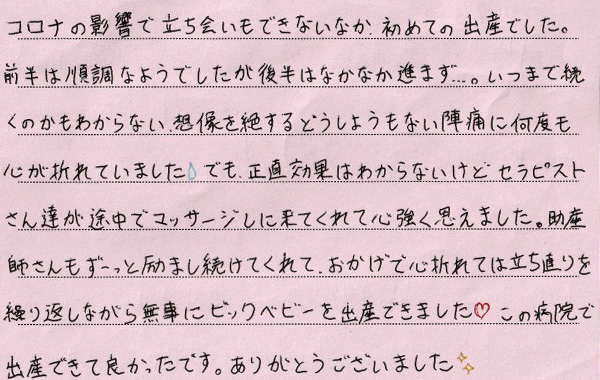 コロナの影響で立ち会いもできないなか、初めての出産でした。
前半は順調なようでしたが後半はなかなか進まず…。いつまで続
くのかもわからない、想像を絶するどうしようもない陣痛に何度も
心が折れていました💧でも、正直効果はわからないけどセラピスト
さん達が途中でマッサージしに来てくれて心強く思えました。助産
師さんもずーっと励まし続けてくれて、おかげで心折れては立ち直りを
繰り返しながら無事にビックベビーを出産できました♡この病院で
出産できて良かったです。ありがとうございました✨